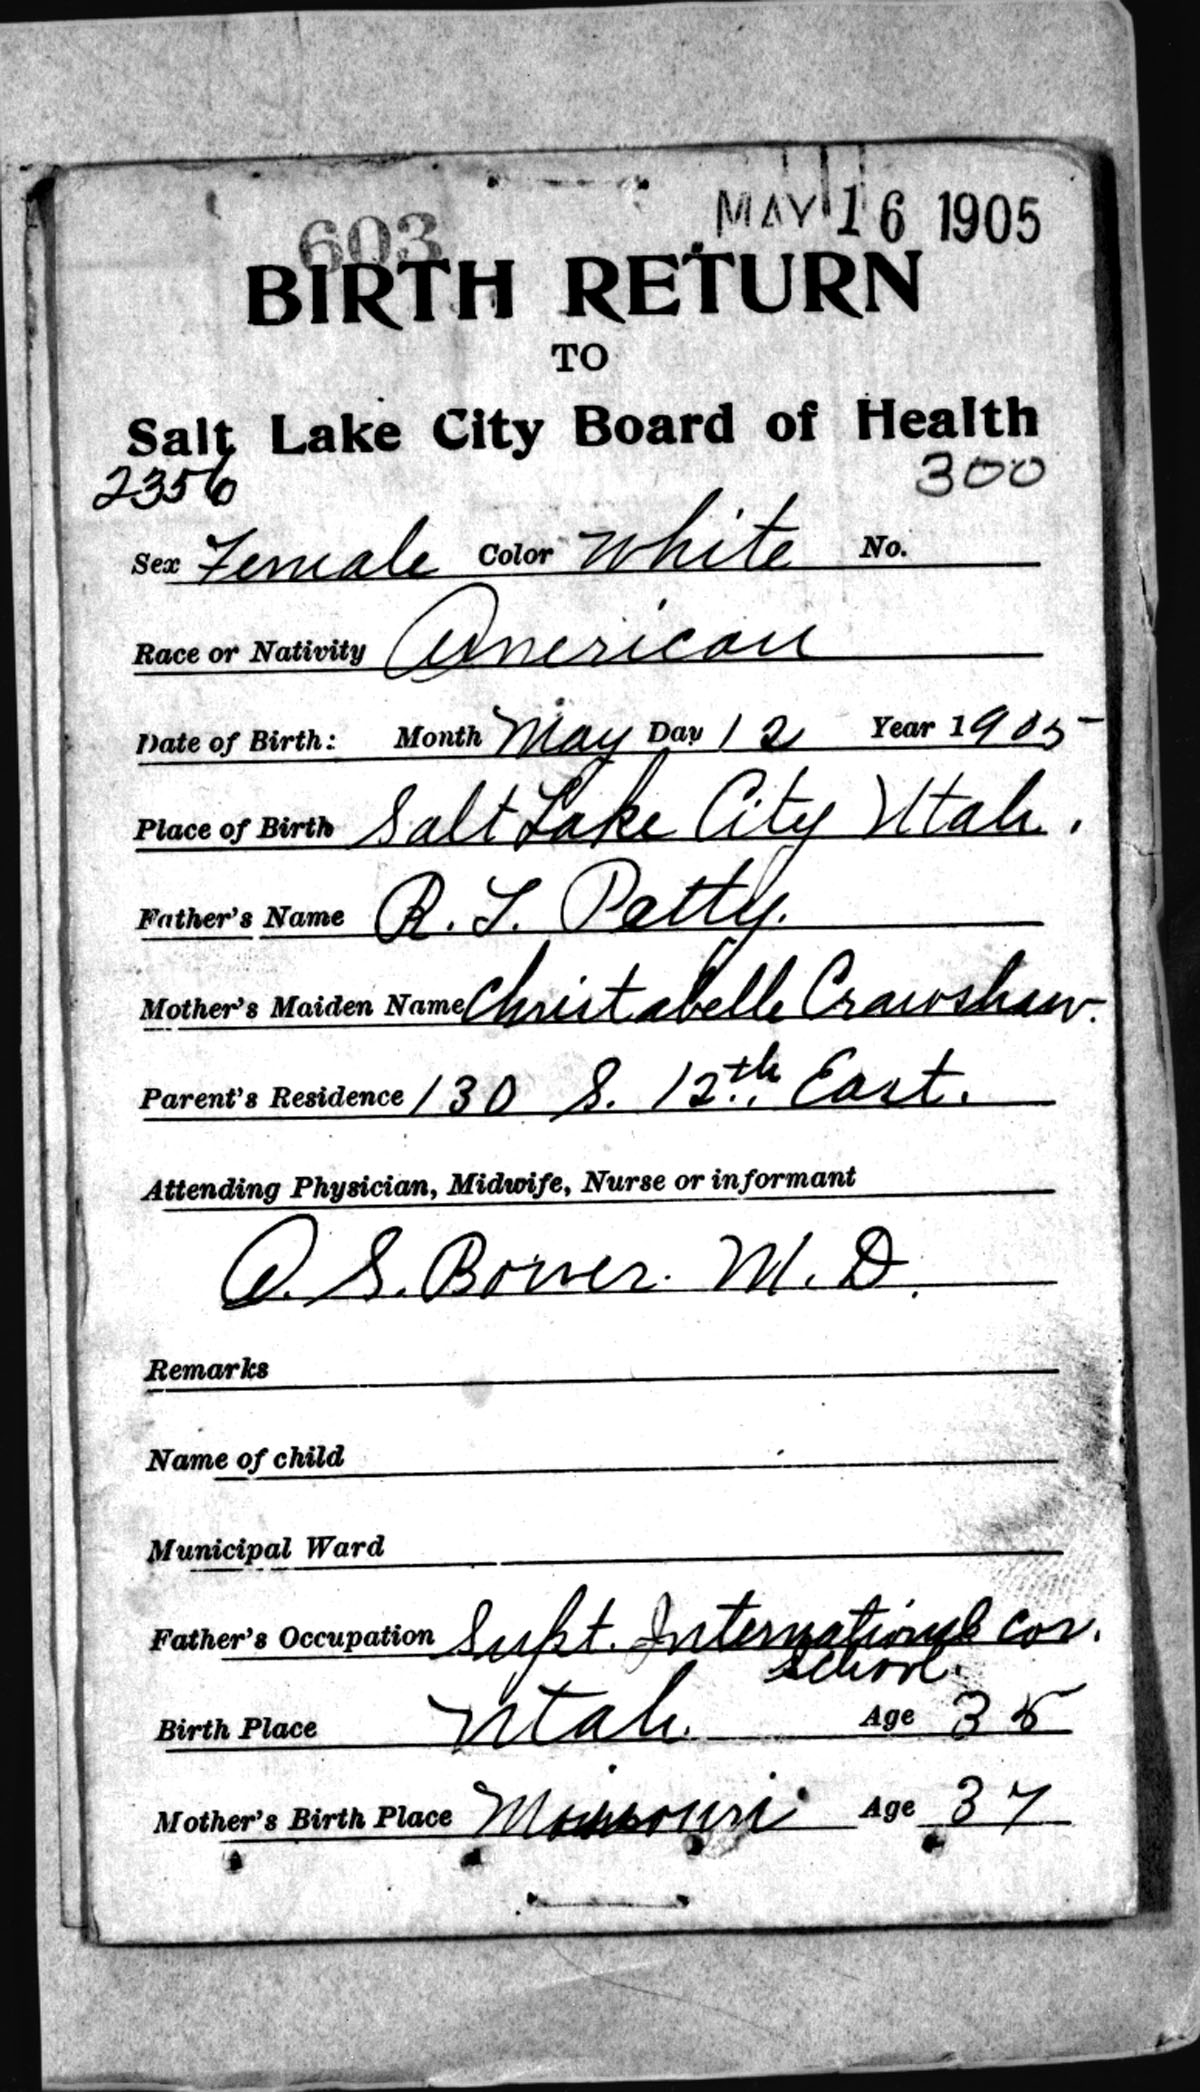 MAY 16 1905
603
BIRTH RETURN
TO
Salt Lake City Board of Health
2356 300
Sex Female Color White No.
Race or Nativity American
Date of Birth: Month May Day 12 Year 1905
Place of Birth Salt Lake City Utah.
Father's Name R. T. Petty.
Mother's Maiden Name Christabelle Crawshaw.
Parent's Residence 130 S. 12th East.
Attending Physician, Midwife, Nurse or informant
A. S. Bower. M. D.
Remarks
Name of child
Municipal Ward
Father's Occupation Supt. International Cor.
School.
Birth Place Utah. Age 35
Mother's Birth Place Missouri Age 37